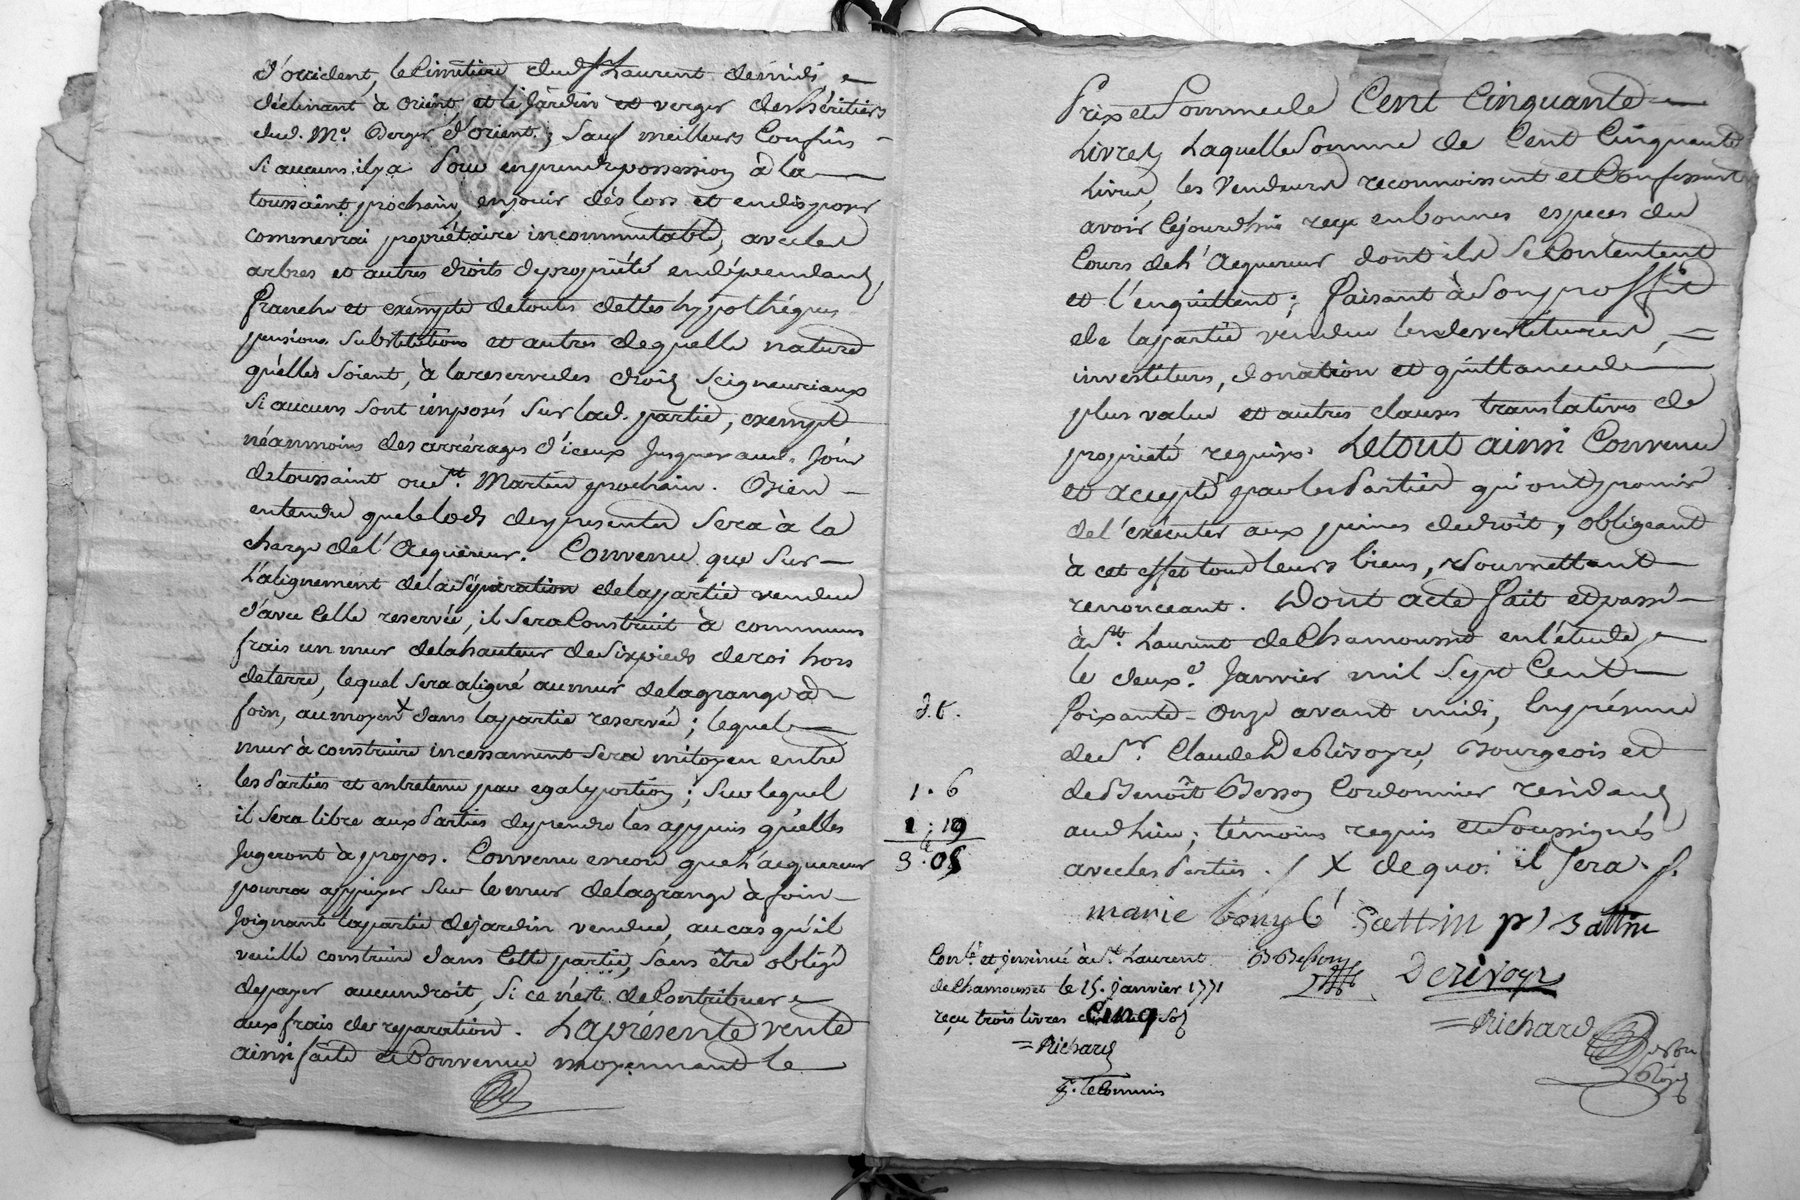 d'occident, le Cimetière dud. St Laurent de midi
déclinant à Orient et le Jardin et verger des héritiers
dud. Me. Berger d'orient; Sauf meilleurs Confins
Si aucuns il y a Pour en prendre possession à la
toussaint prochain, en jouir dès lors et en disposer
comme vrai propriétaire incommutable, avec les
arbres et autres droits de propriété en dépendans,
franche et exempte de toutes dettes hypothéques
pensions Substitutions et autres de quelle nature
qu'elles soient, à la reserve des droits Seigneuriaux
Si aucuns sont imposés Sur lad. partie, exempte
néanmoins des arrérages d'iceux Jusques aud. Jour
de toussaint ou St. Martin prochain. Bien
entendu que le lods des presentes Sera à la
charge de l'Acquéreur. Convenu que Sur
L'alignement de la Séparation de la partie vendue
d'avec Celle reservée, il Sera Construit à communs
frais un mur de la hauteur de Six pieds de roi hors
de terre, lequel sera aligné au mur de la grange à
foin, au moyen X dans la partie reservée; lequel
mur à construire incessament Sera mitoyen entre
les Parties et entretenu par egale portion; Sur lequel
il Sera libre aux Parties de prendre les appuis qu'elles
Jugeront à propos. Convenu encore que L'acquereur
pourra appuyer Sur le mur de la grange à foin
Joignant la partie de jardin vendue, au cas qu'il
veuille construire dans Cette partie, Sans être obligé
de payer aucun droit, Si ce n'est de Contribuer
aux frais de reparation. La présente vente
ainsi faite et Convenue moyennant le
Prix et Somme de Cent Cinquante
Livres, Laquelle Somme de Cent Cinquante
Livres, les Vendeurs reconnoissent et Confessent
avoir Cejourdhui reçu en bonnes especes du
Cours de L'Acquereur dont ils Se Contentent
et l'enquittent; faisant à Son proffit
de la partie vendue les devestitures,
investitures, donation et quittance de
plus value et autres clauses translatives de
propriété requises. Le tout ainsi Convenu
et accepté par les Parties qui ont promis
de l'exécuter aux peines de droit, obligeant
à cet effet tous leurs biens, Soumettant
renonceant. Dont acte fait et passé
à St. Laurent de Chamousset en l'étude,
le deuxe. Janvier mil Sept Cent
Soixante-Onze avant midi, En présence
de Sr. Claude Derivoyre, Bourgeois et
de Benoît Besson Cordonnier résidans
aud. lieu; témoins requis et Soussignés
avec les Parties. / X de quoi il Sera. /.
1 . 6
1 : 19
3 . 05
marie
B Besson
Derivoyr
Richard
Conlé. et insinué à St. Laurent
de Chamousset le 15. Janvier 1771
reçu trois livres Cinq Sols
= Richard